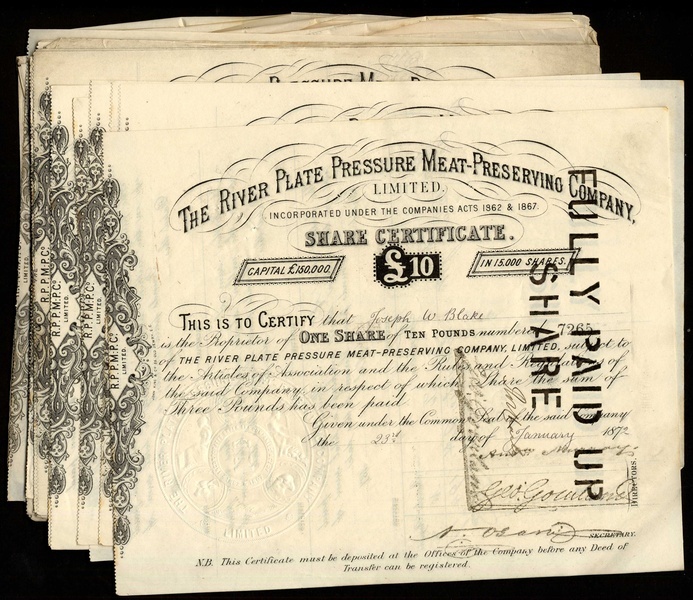 PRESSURE MEAT-P
THE RIVER PLATE PRESSURE MEAT-PRESERVING COMPANY,
LIMITED.
INCORPORATED UNDER THE COMPANIES ACTS 1862 & 1867.
SHARE CERTIFICATE.
CAPITAL £150,000. £10 IN 15,000 SHARES.
THIS IS TO CERTIFY that Joseph W Blake
is the Proprietor of ONE SHARE of TEN POUNDS numbered 7265 subject to
OF THE RIVER PLATE PRESSURE MEAT-PRESERVING COMPANY, LIMITED,
the Articles of Association and the Rules and Regulations of
the said Company, in respect of which Share the sum of
Three Pounds has been paid
Given under the Common Seal of the said Company
the 23rd day of January 1872
DIRECTORS.
SECRETARY.
N.B. This Certificate must be deposited at the Offices of the Company before any Deed of
Transfer can be registered.
FULLY PAID UP
SHARE
R.P.P.M.P.Co.
LIMITED.
R.P.P.M.P.Co.
LIMITED.
R.P.P.M.P.Co.
LIMITED.
R.P.P.M.P.Co.
LIMITED.
LIMITED